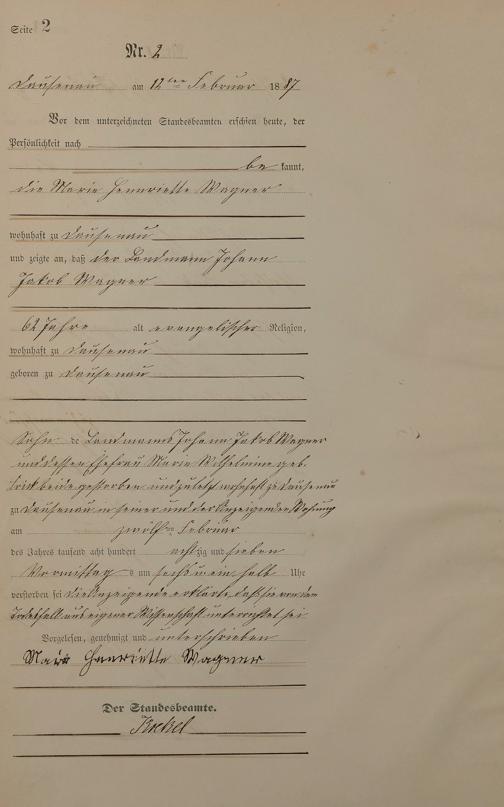 Seite 2
Nr. 2
Dausenau am 12ten Februar 1887
Vor dem unterzeichneten Standesbeamten erschien heute, der
Persönlichkeit nach
be kannt,
die Marie Henriette Wagner
wohnhaft zu Dausenau
und zeigte an, daß der Landmann Johann
Jakob Wagner
62 Jahre alt evangelischer Religion,
wohnhaft zu Dausenau
geboren zu Dausenau
Sohn de Landmanns Johann Jakob Wagner
und dessen Ehefrau Marie Wilhelmine geb.
beide gestorben und zuletzt wohnhaft zu Dausenau
zu Dausenau in seiner und der Anzeigenden Wohnung
am zwölften Februar
des Jahres tausend acht hundert achtzig und sieben
Vormittags um sechs u ein halb Uhr
verstorben sei die Anzeigende erklärte, daß sie von dem
Todesfall aus eigener Wissenschaft unterrichtet sei
Vorgelesen, genehmigt und unterschrieben
Marie Henriette Wagner
Der Standesbeamte.